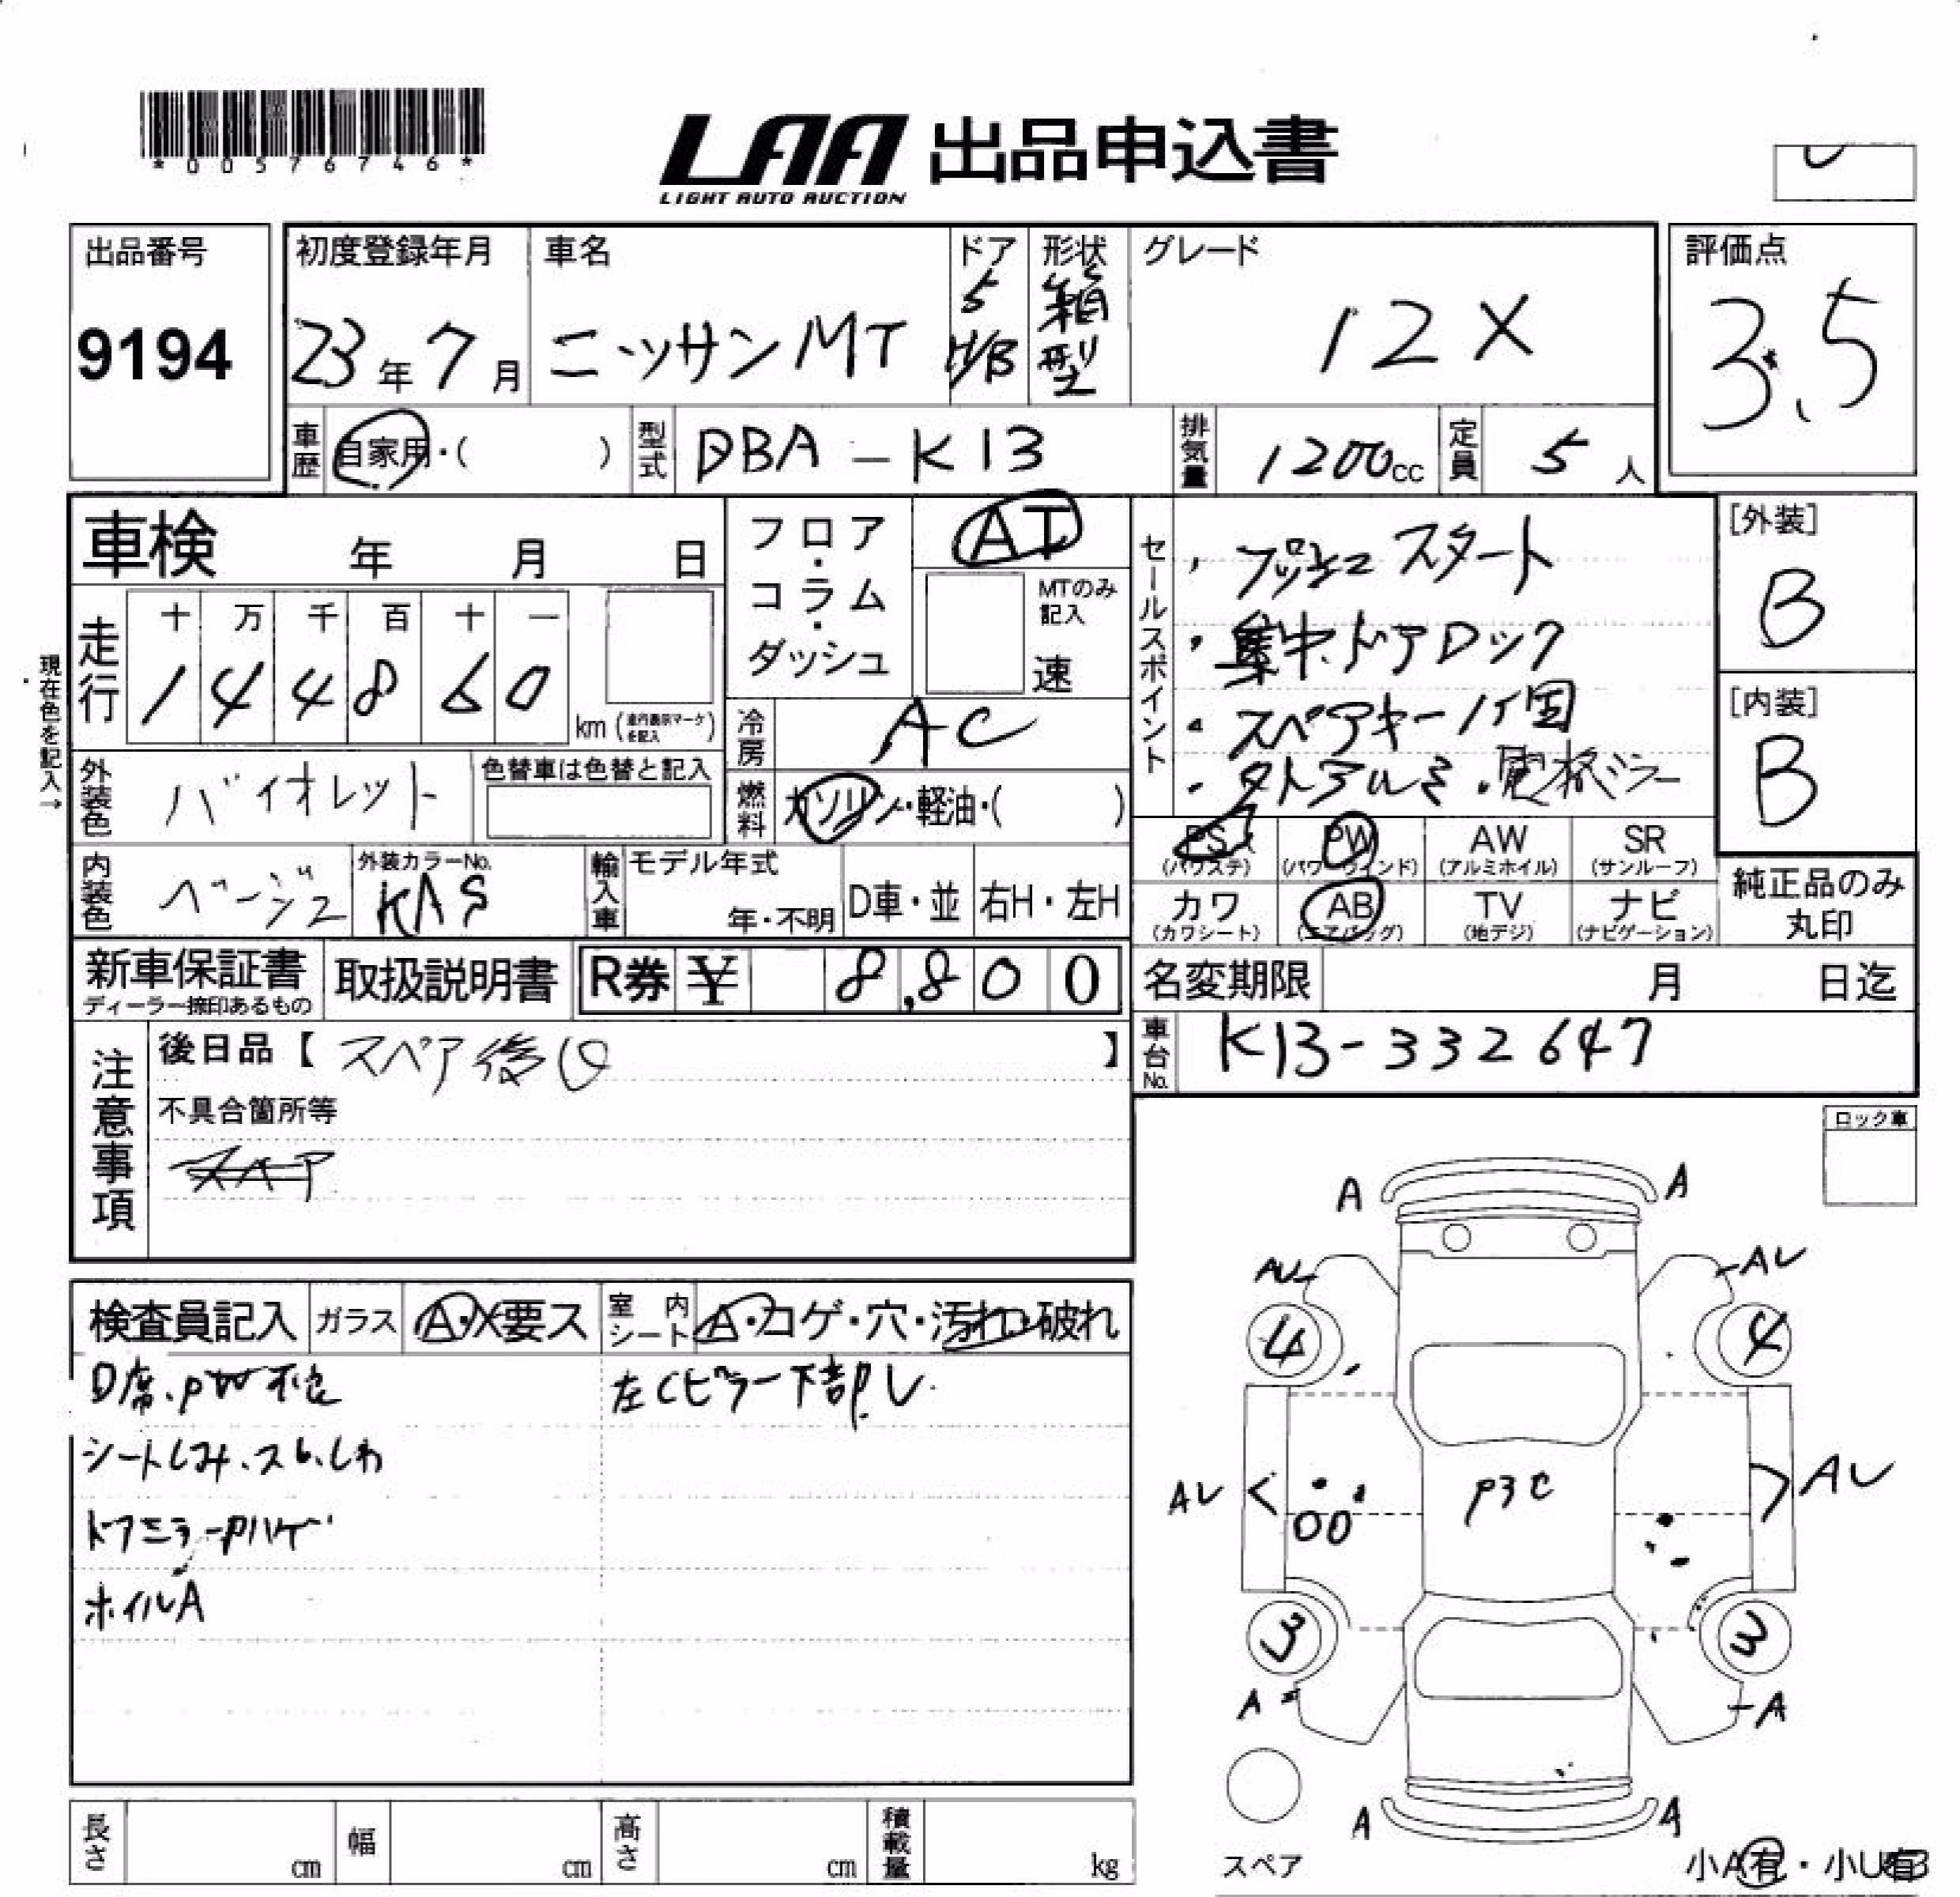 *00576746*
LAA 出品申込書
LIGHT AUTO AUCTION
出品番号
9194
初度登録年月
23年7月
車名
ニッサンMT
ドア
5
H/B
形状
箱型
グレード
12X
評価点
3.5
車歴
自家用・( )
型式
DBA-K13
排気量
1200cc
定員
5人
車検 年 月 日
現在色を記入→
走行
十 万 千 百 十 一
1 4 4 8 6 0
km(走行表示マーケを記入)
フロア・コラム・ダッシュ
AT
MTのみ記入
速
冷房
AC
燃料
ガソリン・軽油・( )
外装色
バイオレット
色替車は色替と記入
内装色
ベージュ
外装カラーNo.
KAS
輸入車
モデル年式
年・不明
D車・並
右H・左H
セールスポイント
・プッシュスタート
・集中ドアロック
・スペアキー1ケ
・アルミ・電格ミラー
[外装]
B
[内装]
B
PS
(パワステ)
PW
(パワーウィンド)
AW
(アルミホイル)
SR
(サンルーフ)
カワ
(カワシート)
AB
(エアバッグ)
TV
(地デジ)
ナビ
(ナビゲーション)
純正品のみ
丸印
新車保証書
ディーラー捺印あるもの
取扱説明書
R券 ¥ 8,800
名変期限 月 日迄
車台No.
K13-332647
注意事項
後日品【 スペア後日 】
不具合箇所等
スペア
ロック車
検査員記入
ガラス
A・X要ス
室内シート
A・コゲ・穴・汚れ・破れ
D席、PW不良
左Cピラー下部U
シートしみ、スレ、しわ
ドアミラーPハゲ
ホイルA
A A
AU AU
4 4
AU AU
P3C
3 3
A A
A A
スペア
小A有・小U有
長さ cm
幅 cm
高さ cm
積載量 kg